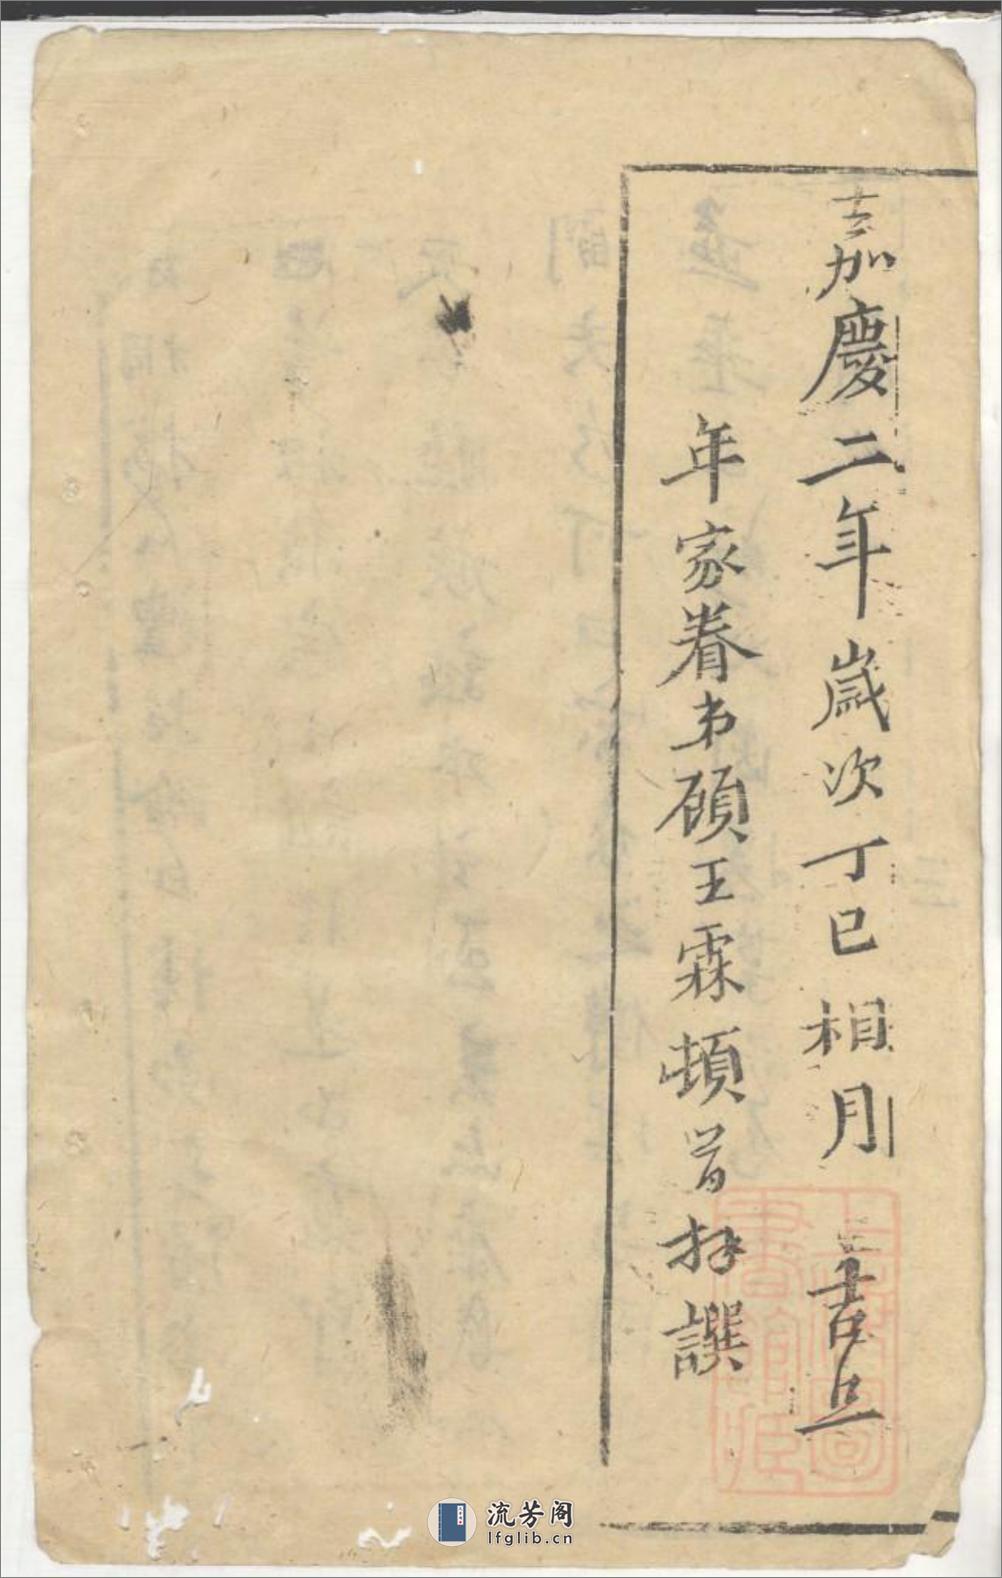 嘉慶二年歲次丁巳相月 吉旦
年家眷弟顧王霖頓首拜譔
上海圖書館藏
流芳阁
lfglib.cn